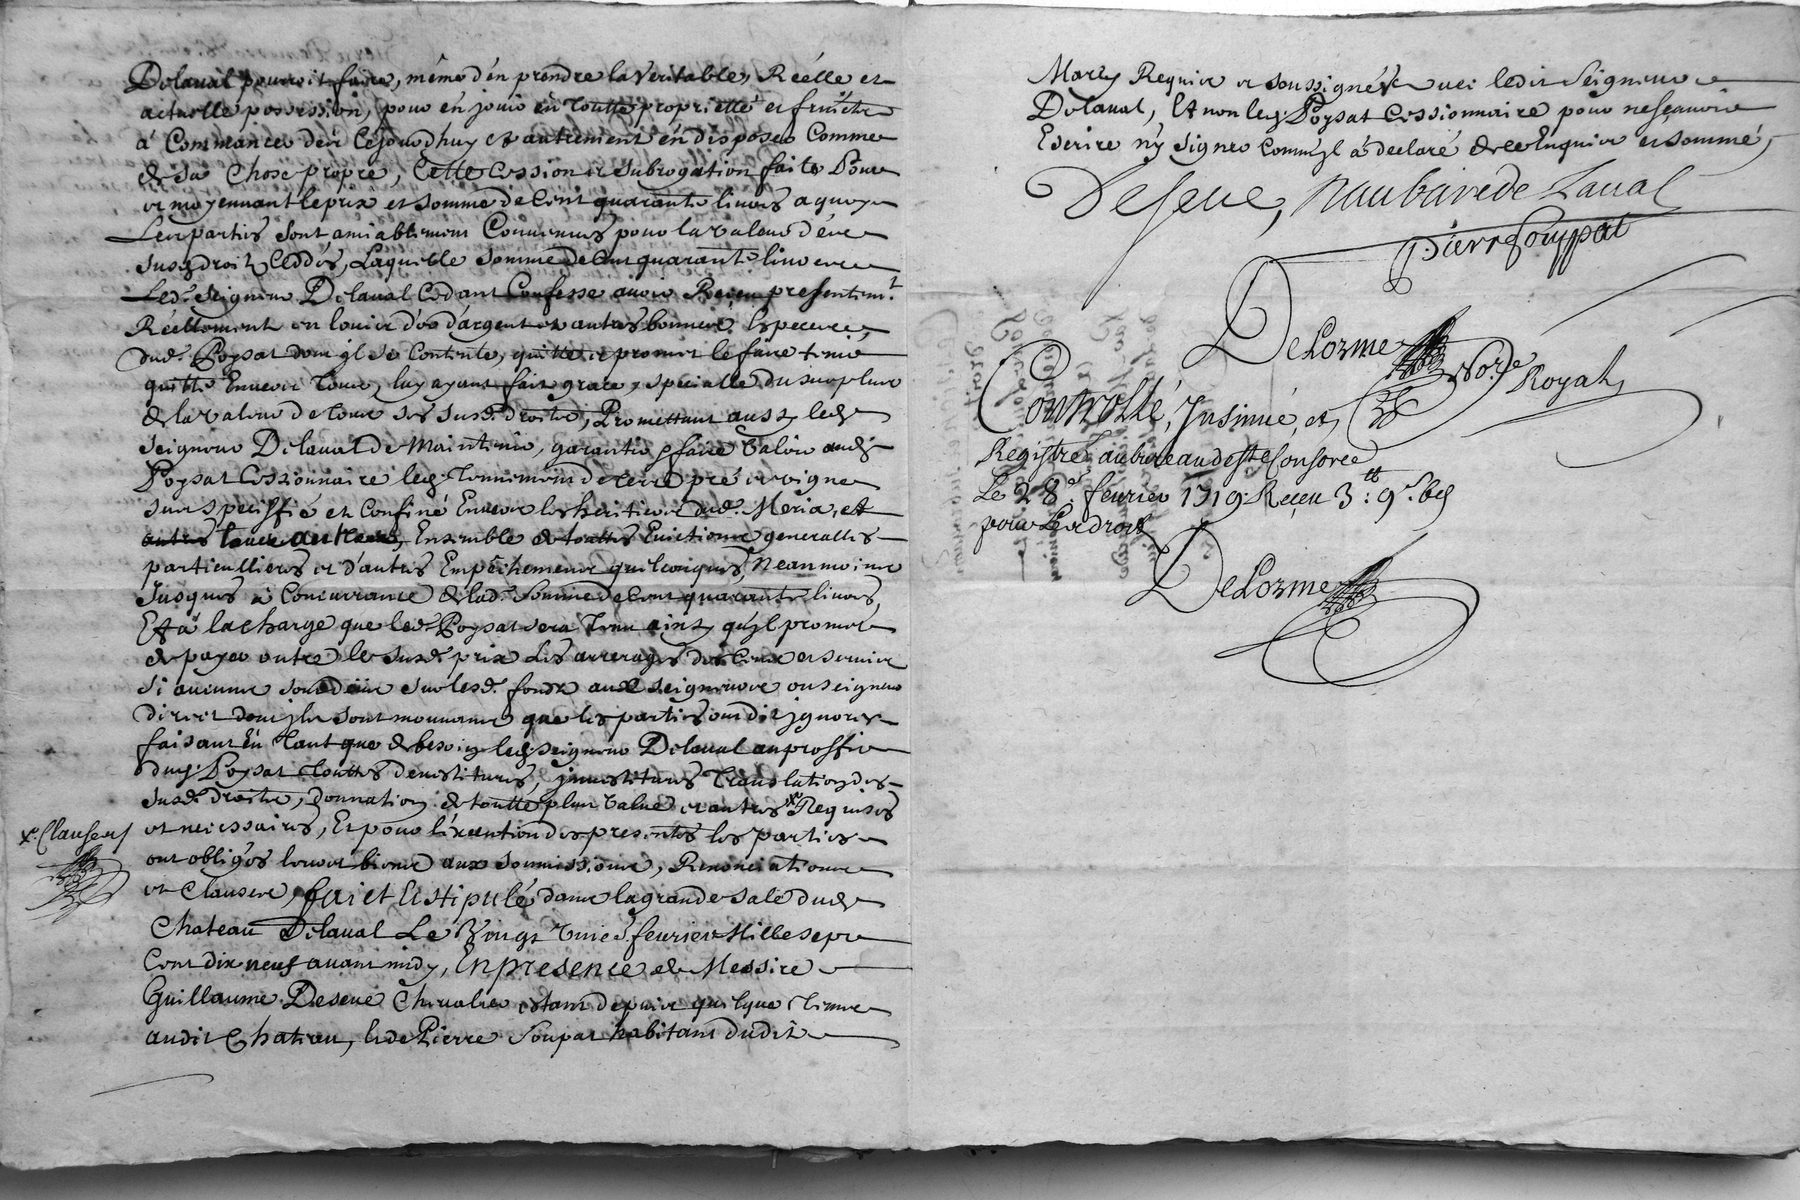 Delaval pourroit faire, même d'en prendre la Veritable, Réélle et
actuelle possession, pour en jouir en toutte proprietté et fruicts
à Commancer dèz Cejourdhuy et autrement en disposer Comme
de sa Chose propre, Cette Cession et subrogation faite Pour
et moyennant le prix et somme de Cent quarante livres a quoy
Les parties sont amiablement Convenues pour la valeur d'
susd. droits Cèddés, Laquelle Somme de Cent quarante livres
Led. Seigneur Delaval Cedant Confesse avoir Reçeu presentemt.
Réellement en louis d'or d'argent et autres bonnes Especes
dud. Poysat dont jl se Contente, quitte et promet le faire tenir
quitte Envers tous, luy ayant fait grace specialle du surplus
de la valeur de tous ses susd. droits, Promettant aussy led.
Seigneur Delaval de Maintenir, garantir faire Valoir aud.
Poysat Cessionnaire led. Tennement de terre pré et vigne
sus speciffié et Confiné Envers les heritiers dud. Meria, et
tous autres, Ensemble de touttes Evictions generalles
particulliers et d'autres Empêchements quelconques, Neanmoins
Jusques à Concurrance de lad. Somme de Cent quarante livres,
Et à la charge que led. Poysat sera Tenu ainsy qu'jl promet
de payer outre le susd. prix Les arrerages des Cens et servis
si aucuns sont deus sur lesd. fonds aux seigneurs ou seigneur
direct dont jls sont mouvants que les parties ont dit jgnorer
faisant En Tant que de besoing led. Seigneur Delaval au proffit
dud. Poysat Touttes devestitures, jnvestitures Translation des
susd. droits, donnation de toutte plus Value et autres x Requises
et necessaires, Et pour l'éxecution des presentes les parties
ont obligés leurs biens aux soumissions, Renonciations
x. Clauses
et Clauses, fait Et stipulé dans la grande sale dud.
Chateau Delaval Le Vingt Trois. feuvrier Mille sept
Cent dix neuf avant midy, En presence de Messire
Guillaume Deseve Chevalier estant depuis quelque temps
audit Chateau, et de Pierre Soupat habitant dudit
Requis et soussignés avec ledit Seigneur
Delaval, Et non led. Poysat Cessionnaire pour ne sçavoir
Escrire ny signer Comm'jl à declaré de ce Enquis et sommé,
Deseve, Naubarede Laval
Pierre Souppat
DeLorme Nore. Royal
Controllé, Jnsinué, et
Registré au bureau de Ste Consorce
Le 28e. février 1719. Reçeu 3tt: 9s. 6d
pour Les droits
DeLorme